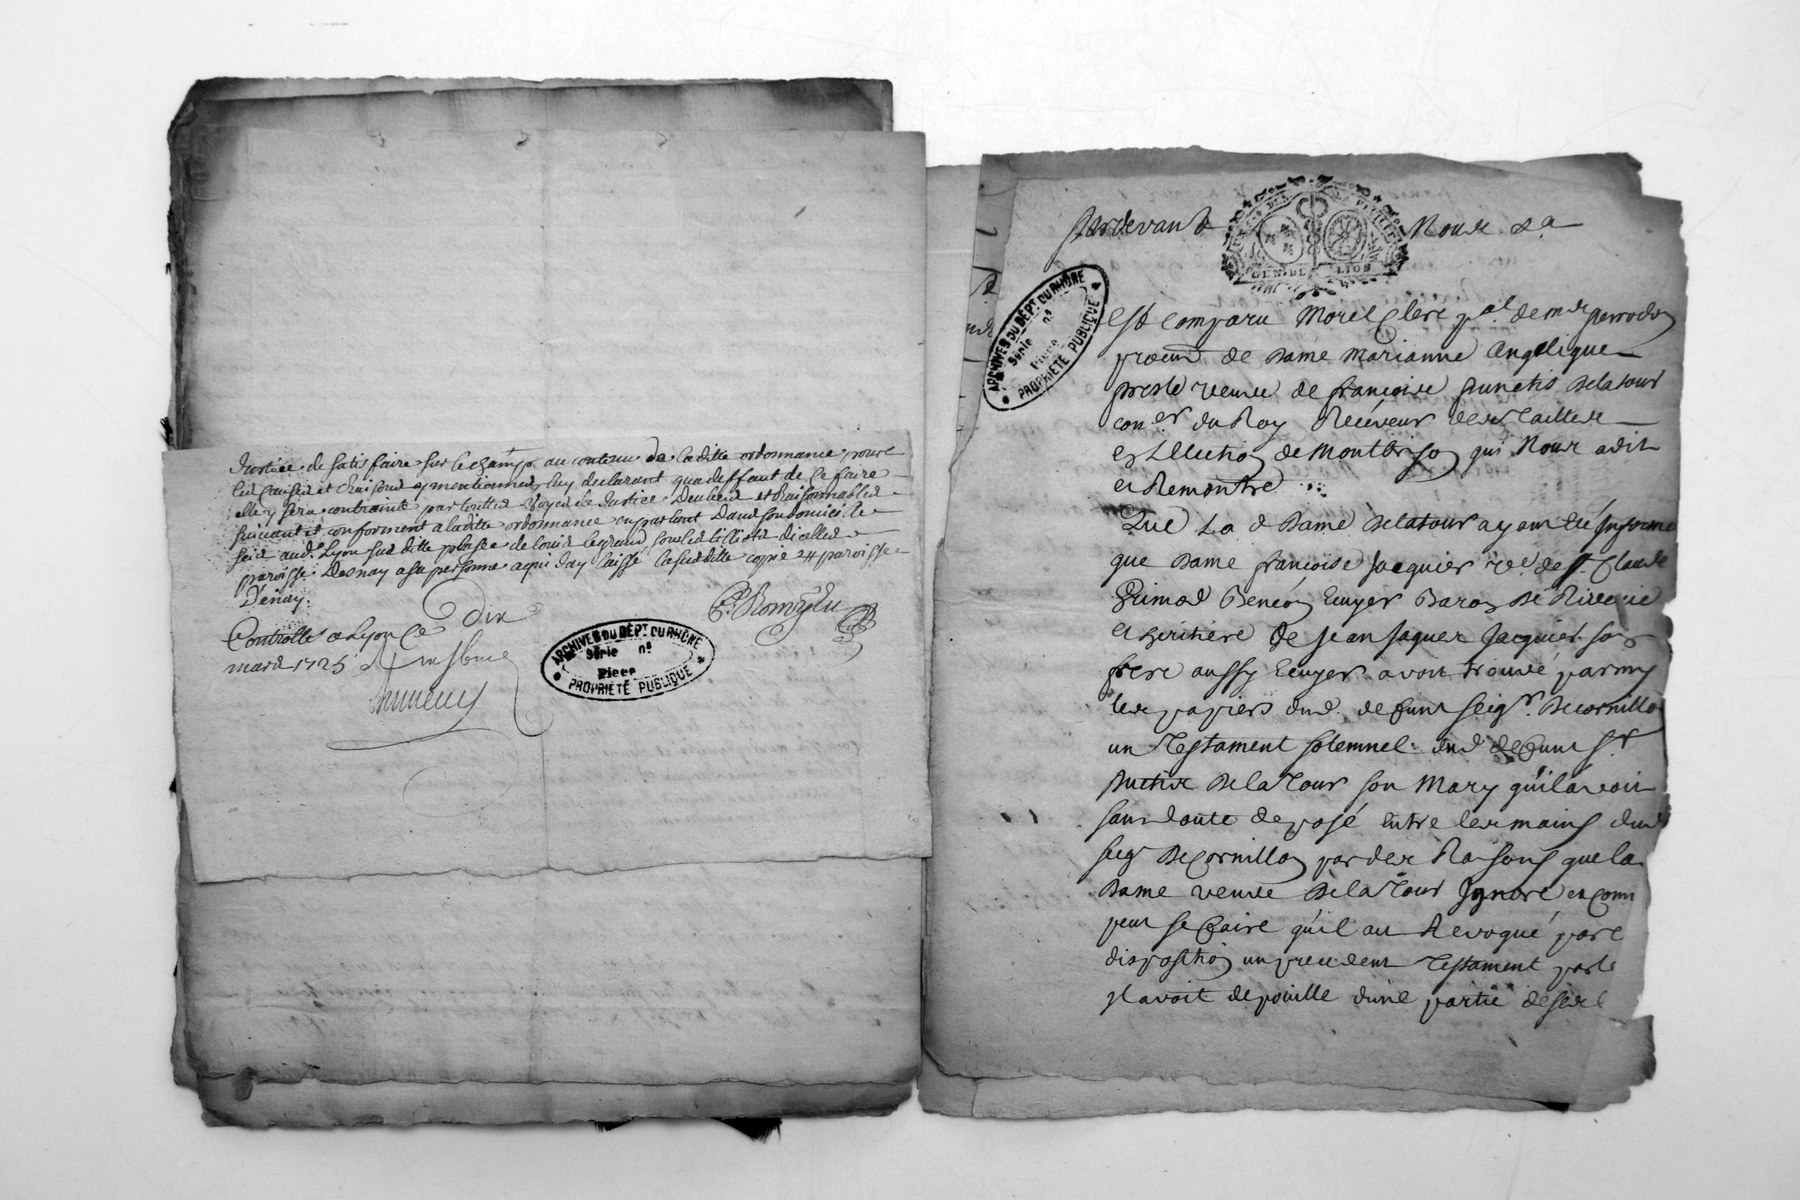 Justice de satisfaire sur le champ au contenu de laditte ordonnance pour
les causes et raisons y mentionnes luy declarant qua deffaut de ce faire
elle y sera contrainte par touttes voyes de Justice deubes et raisonnables
suivant et conforment a laditte ordonnance en parlant dans son domicille
scis aud. Lyon susditte place de louis legrand
paroisse Desnay a sa personne a qui Jay laisse la susditte copie paroisse
Denay.
Controlle a Lyon ce dix
mars 1725
ARCHIVES DU DÉPT. DU RHÔNE
Série nº
Piece
PROPRIÉTÉ PUBLIQUE
Pardevant Nous
GEN. DE LION
ARCHIVES DU DÉPT. DU RHÔNE
Série nº
Piece
PROPRIÉTÉ PUBLIQUE
Est comparu Morel Clerc pal. de me perrodon
procur de dame marianne angelique
presle veuve de françois punctis Delatour
coner du Roy Receveur des Tailles
en Election de Montbrison qui Nous a dit
et Remontré
Que la d dame Delatour ayant eté Informe
que dame françoise Jacquier ve de Sr. Claude
Grimod Benéon Ecuyer Baron De Riverie
et heritiere de jean jaques Jacquier son
frere aussy Ecuyer avoit trouvé parmy
les papiers dud. defunt seigr. Decornillon
un Testament solemnel dud defunt Sr
De la Tour son Mary qu'il avoit
sans doute deposé entre les mains dud
seigr Decornillon par des Raisons que la
dame veuve De la Tour Ignore et comm
peut se faire qu'il ait Revoqué par c
disposition un precedent Testament par le
Il avoit depouille d'une partie de ses